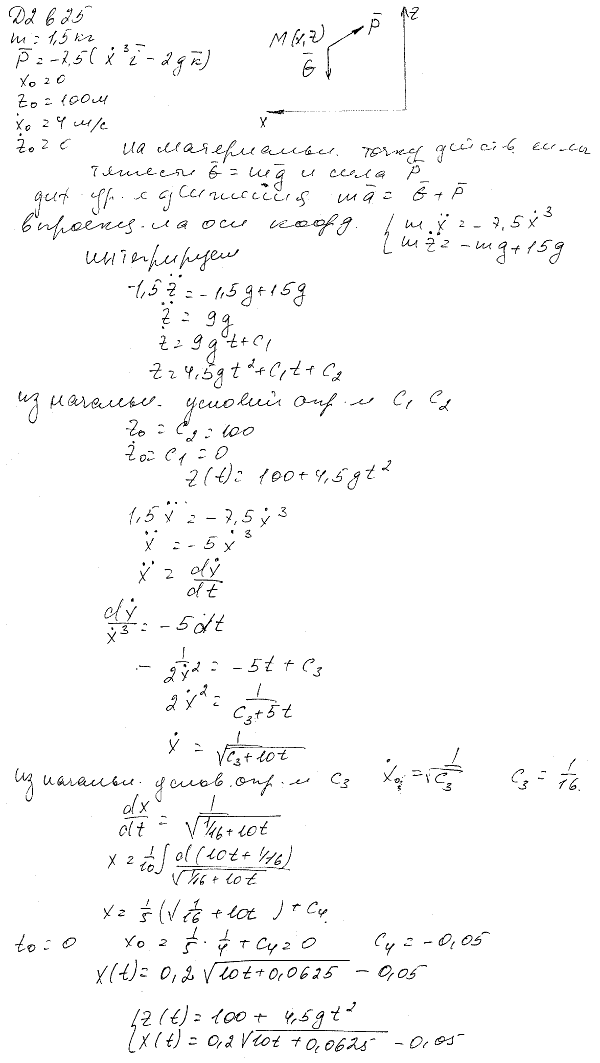 Д2 в 25
m = 1,5 кг
P̄ = -7,5(ẋ³ī - 2gk̄)
x₀ = 0
z₀ = 100м
ẋ₀ = 4 м/с
ż₀ = 0
z
M(x,z)
P̄
Ḡ
x
на материальн. точку действ. силы
тяжести Ḡ = mḡ и сила P̄
диф. ур. движения mā = Ḡ + P̄
в проекц. на оси коорд. { mẍ = -7,5ẋ³
mz̈ = -mg + 15g
интегрируем
1,5z̈ = -1,5g + 15g
z̈ = 9g
ż = 9gt + C₁
z = 4,5gt² + C₁t + C₂
из начальн. условий опр-м C₁ C₂
z₀ = C₂ = 100
ż₀ = C₁ = 0
z(t) = 100 + 4,5gt²
1,5ẍ = -7,5ẋ³
ẍ = -5ẋ³
ẍ = dẋ/dt
dẋ/ẋ³ = -5dt
- 1/2ẋ² = -5t + C₃
2ẋ² = 1/(C₃+5t)
ẋ = 1/√(C₃+10t)
из начальн. услов. опр-м C₃ ẋ₀ = 1/√C₃ C₃ = 1/16
dx/dt = 1/√(1/16+10t)
x = 1/10 ∫ d(10t+1/16)/√(1/16+10t)
x = 1/5 (√(1/16+10t)) + C₄
t₀ = 0 x₀ = 1/5 · 1/4 + C₄ = 0 C₄ = -0,05
x(t) = 0,2√(10t+0,0625) - 0,05
{ z(t) = 100 + 4,5gt²
x(t) = 0,2√(10t+0,0625) - 0,05